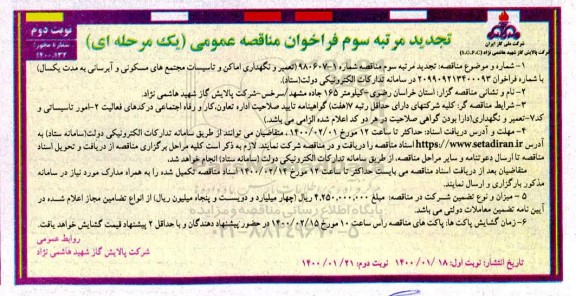 نوبت دوم
شماره مجوز:
۱۴۰۰.۱۳۲
تجدید مرتبه سوم فراخوان مناقصه عمومی (یک مرحله ای)
شرکت ملی گاز ایران
شرکت پالایش گاز شهید هاشمی نژاد (S.G.P.C)
۱- شماره و موضوع مناقصه: تجدید مرتبه سوم مناقصه شماره ۱-۹۸۰۶۰۷ (تعمیر و نگهداری اماکن و تاسیسات مجتمع های مسکونی و آبرسانی به مدت یکسال)
با شماره فراخوان ۲۰۹۹۰۹۲۱۳۴۰۰۰۹۳ در سامانه تدارکات الکترونیکی دولت(ستاد).
۲- نام و نشانی مناقصه گزار: استان خراسان رضوی-کیلومتر ۱۶۵ جاده مشهد/سرخس-شرکت پالایش گاز شهید هاشمی نژاد.
۳- شرایط مناقصه گر: کلیه شرکتهای دارای حداقل رتبه ۷(هفت) گواهینامه تایید صلاحیت اداره تعاون،کار و رفاه اجتماعی در کدهای فعالیت ۲-امور تاسیساتی و
کد۷-تعمیر و نگهداری(دارا بودن گواهی صلاحیت در هر دو کد اعلام شده الزامی می باشد).
۴- مهلت و آدرس دریافت اسناد: حداکثر تا ساعت ۱۲ مورخ ۱۴۰۰/۰۲/۰۱ ، متقاضیان می توانند از طریق سامانه تدارکات الکترونیکی دولت(سامانه ستاد) به
آدرس https://www.setadiran.ir اسناد مناقصه را دریافت و در مناقصه شرکت نمایند. لازم به ذکر است کلیه مراحل برگزاری مناقصه از دریافت و تحویل اسناد
مناقصه تا ارسال دعوتنامه و سایر مراحل مناقصه، از طریق سامانه تدارکات الکترونیکی دولت (سامانه ستاد) انجام خواهد شد.
متقاضیان بعد از دریافت اسناد مناقصه می بایست حداکثر تا ساعت ۱۲ مورخ ۱۴۰۰/۰۲/۱۴ اسناد مناقصه تکمیل شده را به همراه مدارک مورد نیاز در سامانه
مذکور بارگزاری و ارسال نمایند.
۵- میزان و نوع تضمین شرکت در مناقصه: مبلغ ۴،۲۵۰،۰۰۰،۰۰۰ ریال (چهار میلیارد و دویست و پنجاه میلیون ریال) از انواع تضامین مجاز اعلام شده در
آیین نامه تضمین معاملات دولتی می باشد.
۶- زمان گشایش پاکت ها: پاکت های مناقصه رأس ساعت ۱۰ مورخ ۱۴۰۰/۰۲/۱۵ در حضور پیشنهاد دهندگان و با حداقل ۲ پیشنهاد قیمت گشایش خواهد یافت.
روابط عمومی
شرکت پالایش گاز شهید هاشمی نژاد
تاریخ انتشار: نوبت اول: ۱۴۰۰/۰۱/۱۸ نوبت دوم: ۱۴۰۰/۰۱/۲۱
پایگاه اطلاع رسانی مناقصه و مزایده
۰۲۱-۸۸۳۴۹۶۷۰-۵